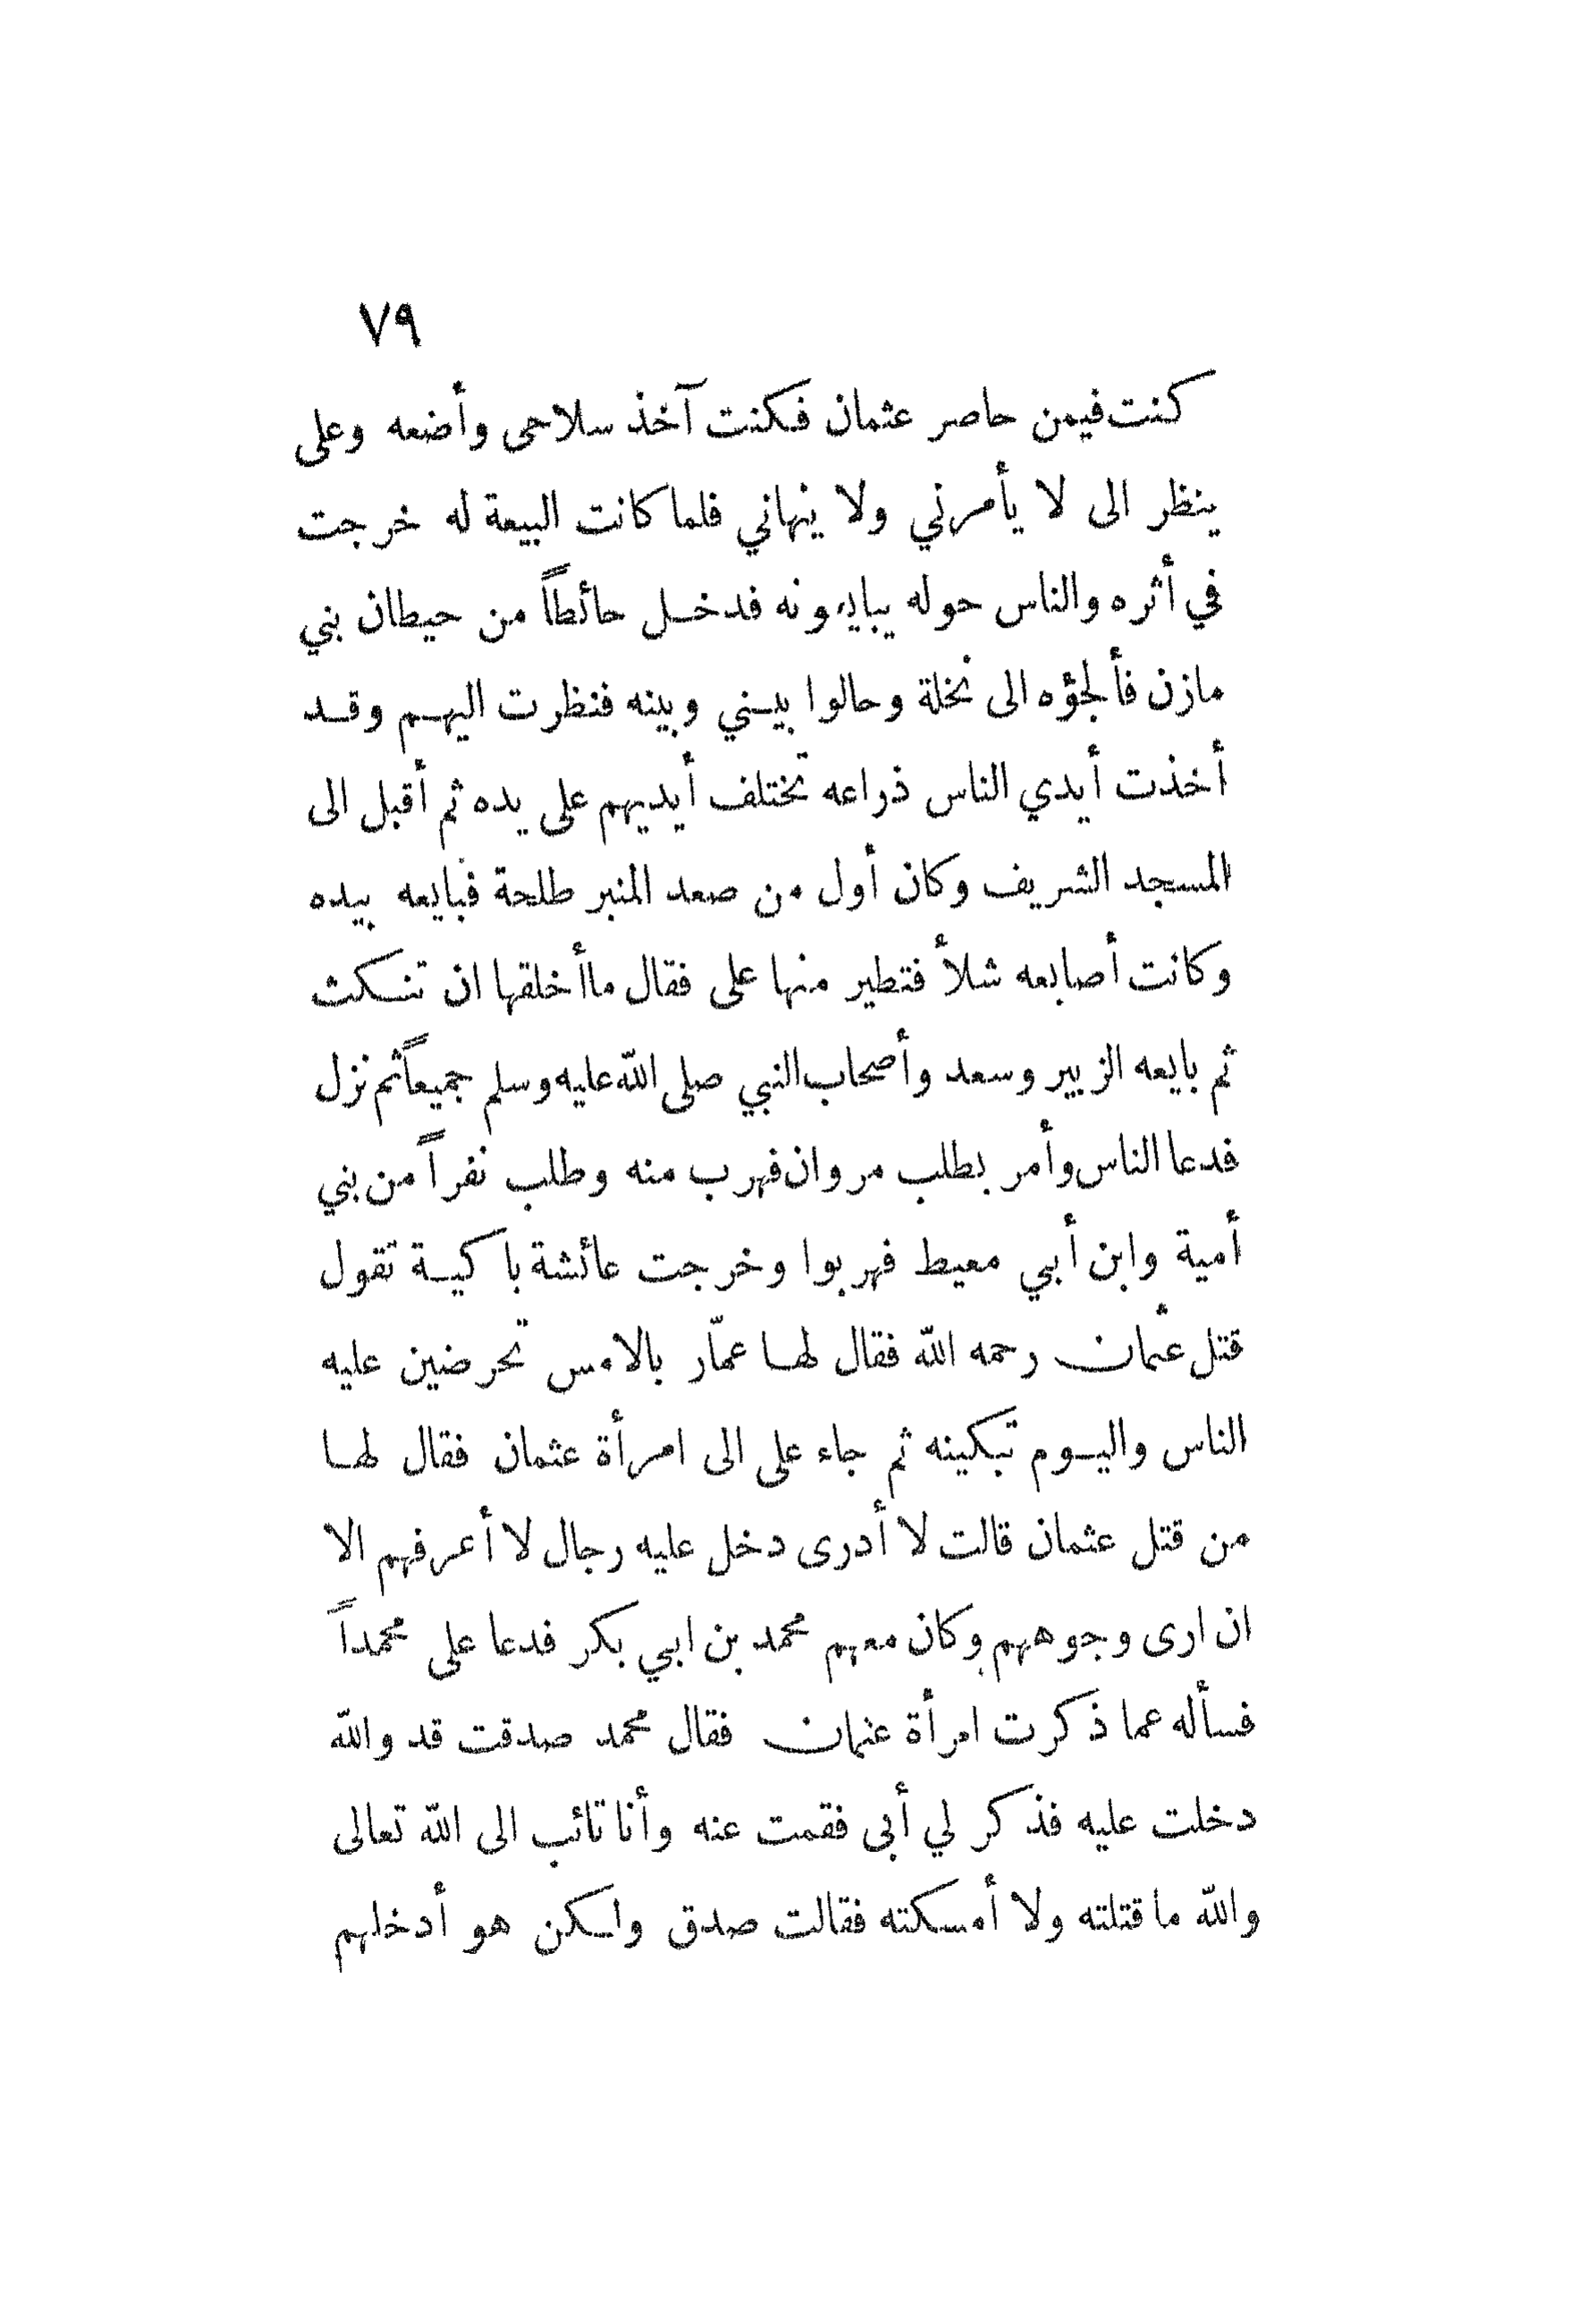 ٧٩
كنت فيمن حاصر عثمان فكنت آخذ سلاحى وأضعه وعلى
ينظر الى لا يأمرني ولا ينهاني فلما كانت البيعة له خرجت
في أثره والناس حوله يبايعونه فدخل حائطاً من حيطان بني
مازن فألجؤه الى نخلة وحالوا بيني وبينه فنظرت اليهم وقد
أخذت أيدي الناس ذراعه تختلف أيديهم على يده ثم أقبل الى
المسجد الشريف وكان أول من صعد المنبر طلحة فبايعه بيده
وكانت أصابعه شلأ فتطير منها على فقال ما أخلقها ان تنكث
ثم بايعه الزبير وسعد وأصحاب النبي صلى الله عليه وسلم جميعاً ثم نزل
فدعا الناس وأمر بطلب مروان فهرب منه وطلب نفراً من بني
أمية وابن أبي معيط فهربوا وخرجت عائشة باكية تقول
قتل عثمان رحمه الله فقال لها عمّار بالامس تحرضين عليه
الناس واليوم تبكينه ثم جاء على الى امرأة عثمان فقال لها
من قتل عثمان قالت لا أدرى دخل عليه رجال لا أعرفهم الا
ان ارى وجوههم وكان معهم محمد بن ابي بكر فدعا على محمداً
فسأله عما ذكرت امرأة عثمان فقال محمد صدقت قد والله
دخلت عليه فذكر لي أبى فقمت عنه وأنا تائب الى الله تعالى
والله ما قتلته ولا أمسكته فقالت صدق ولكن هو أدخلهم